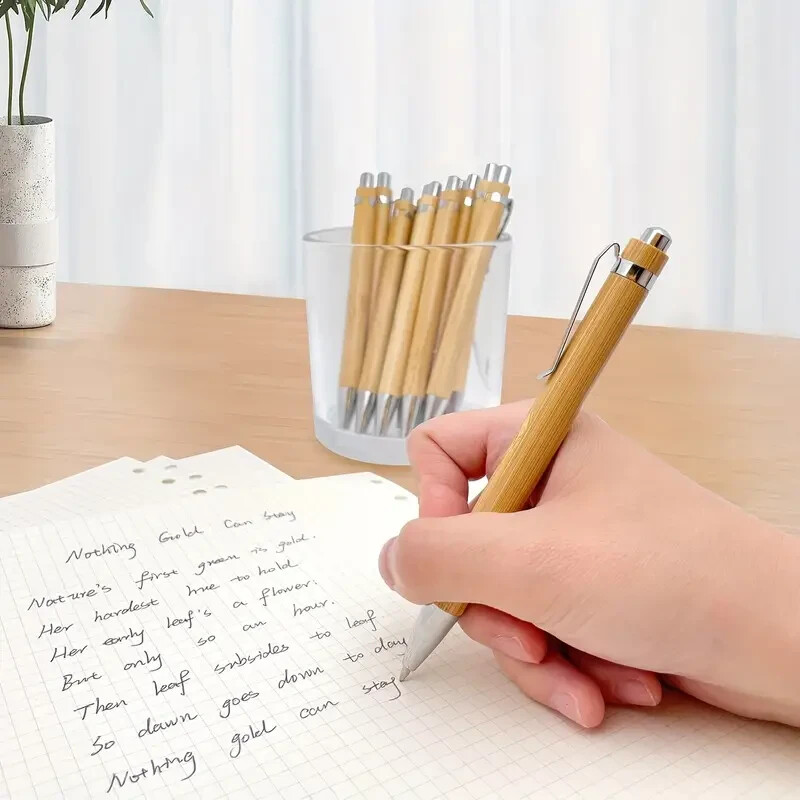 Nothing Gold Can Stay
Nature's first green is gold.
Her hardest hue to hold
Her early leaf's a flower:
But only so an hour.
Then leaf subsides to leaf
So dawn goes down to day
Nothing gold can stay